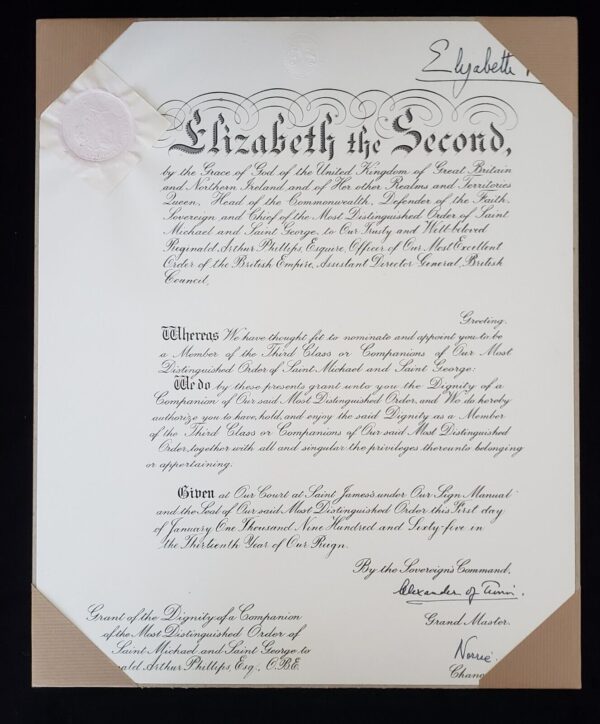 Elizabeth R
Elizabeth the Second,
by the Grace of God of the United Kingdom of Great Britain
and Northern Ireland and of Her other Realms and Territories
Queen, Head of the Commonwealth, Defender of the Faith,
Sovereign and Chief of the Most Distinguished Order of Saint
Michael and Saint George, to Our Trusty and Well-beloved
Reginald Arthur Phillips, Esquire, Officer of Our Most Excellent
Order of the British Empire, Assistant Director General, British
Council,
Greeting.
Whereas We have thought fit to nominate and appoint you to be
a Member of the Third Class or Companions of Our Most
Distinguished Order of Saint Michael and Saint George:
We do by these presents grant unto you the Dignity of a
Companion of Our said Most Distinguished Order, and We do hereby
authorize you to have, hold, and enjoy the said Dignity as a Member
of the Third Class or Companions of Our said Most Distinguished
Order, together with all and singular the privileges thereunto belonging
or appertaining.
Given at Our Court at Saint James's under Our Sign Manual
and the Seal of Our said Most Distinguished Order this First day
of January One Thousand Nine Hundred and Sixty-five in
the Thirteenth Year of Our Reign.
By the Sovereign's Command,
Alexander of Tunis.
Grand Master.
Norrie
Chanc
Grant of the Dignity of a Companion
of the Most Distinguished Order of
Saint Michael and Saint George to
ald Arthur Phillips, Esq., O.B.E.